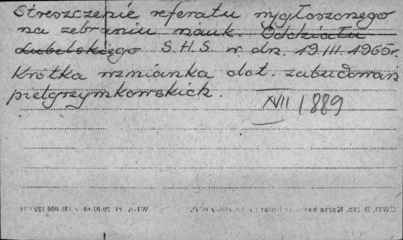 Streszczenie referatu wygłoszonego
na zebraniu nauk. Oddziału
Lubelskiego S.H.S. w dn. 19.III.1965r.
Krótka wzmianka dot. zabudowań
pielgrzymkowskich.
XVII/889